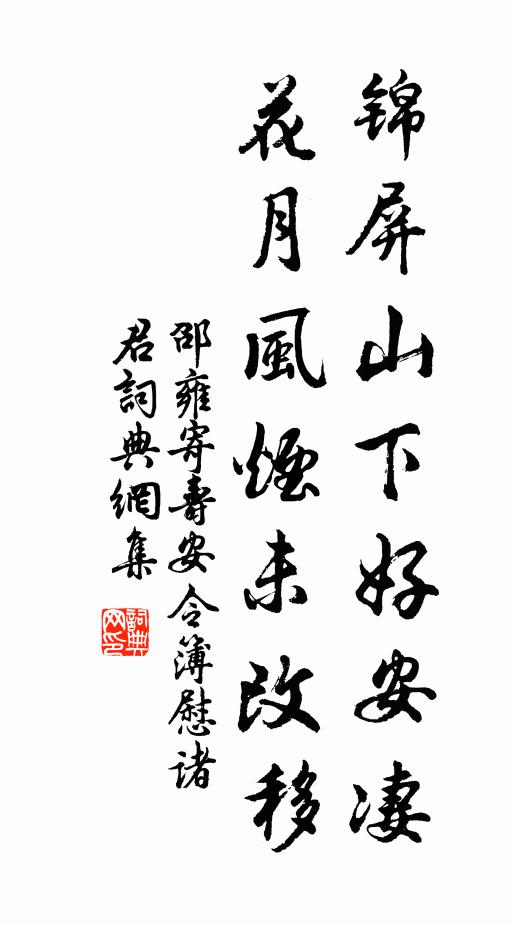 锦屏山下好安凄
花月風煙未改移
邵雍寄壽安令簿慰诸
君詞典網集
詞典网印